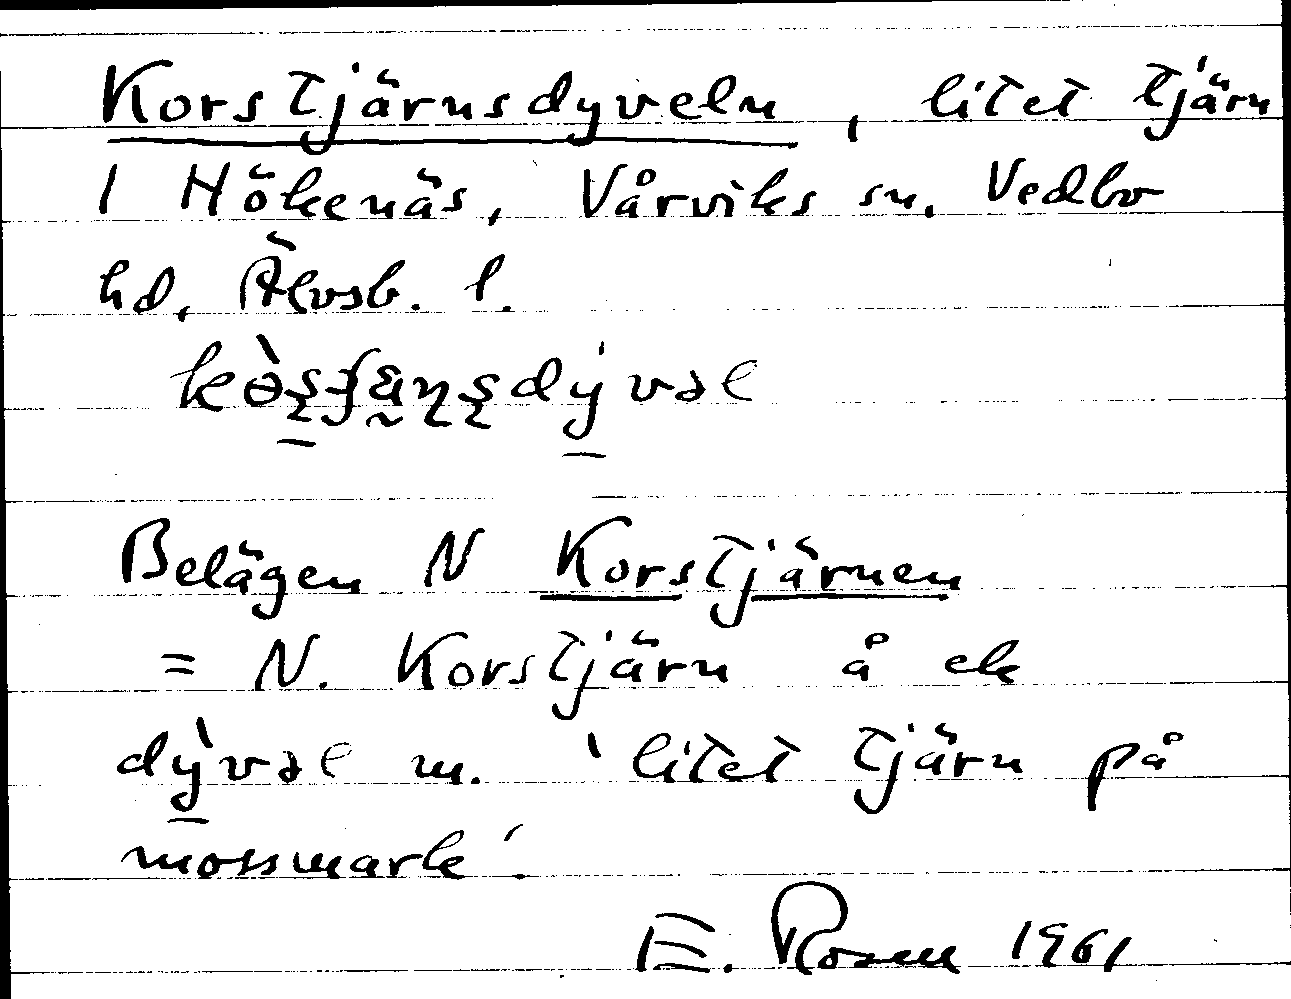 Korstjärnsdyveln, litet tjärn
i Hökenäs, Vårviks sn. Vedbo
hd, Älvsb. l.
Belägen N Korstjärnen
= N. Korstjärn å ek
dỳvəl m. 'litet tjärn på
mossmark'.
E. Rosell 1961